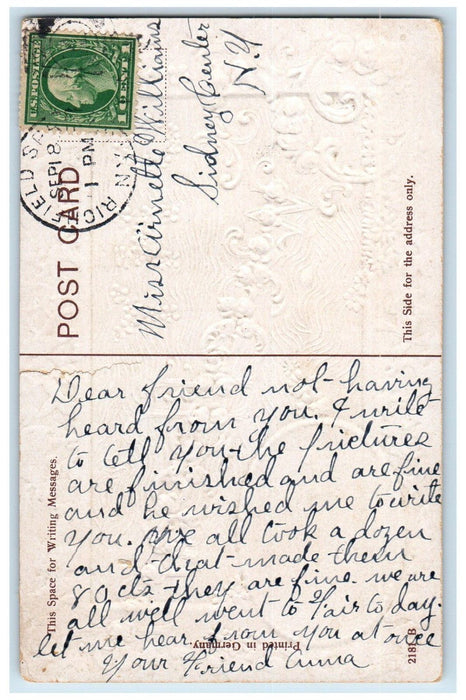 U.S.POSTAGE
1 CENT 1
RICHFIELD SP
N.Y.
SEP 18
1 PM
POST CARD
This Side for the address only.
Miss Arnette Williams
Sidney Center
N.Y
This Space for Writing Messages.
Dear friend not having
heard from you. I write
to tell you the pictures
are finished and are fine
and he wished me to write
you. We all took a dozen
and that made them
80 cts they are fine. we are
all well went to Fair to day.
let me hear from you at once
Your Friend Anna
Printed in Germany
218 B